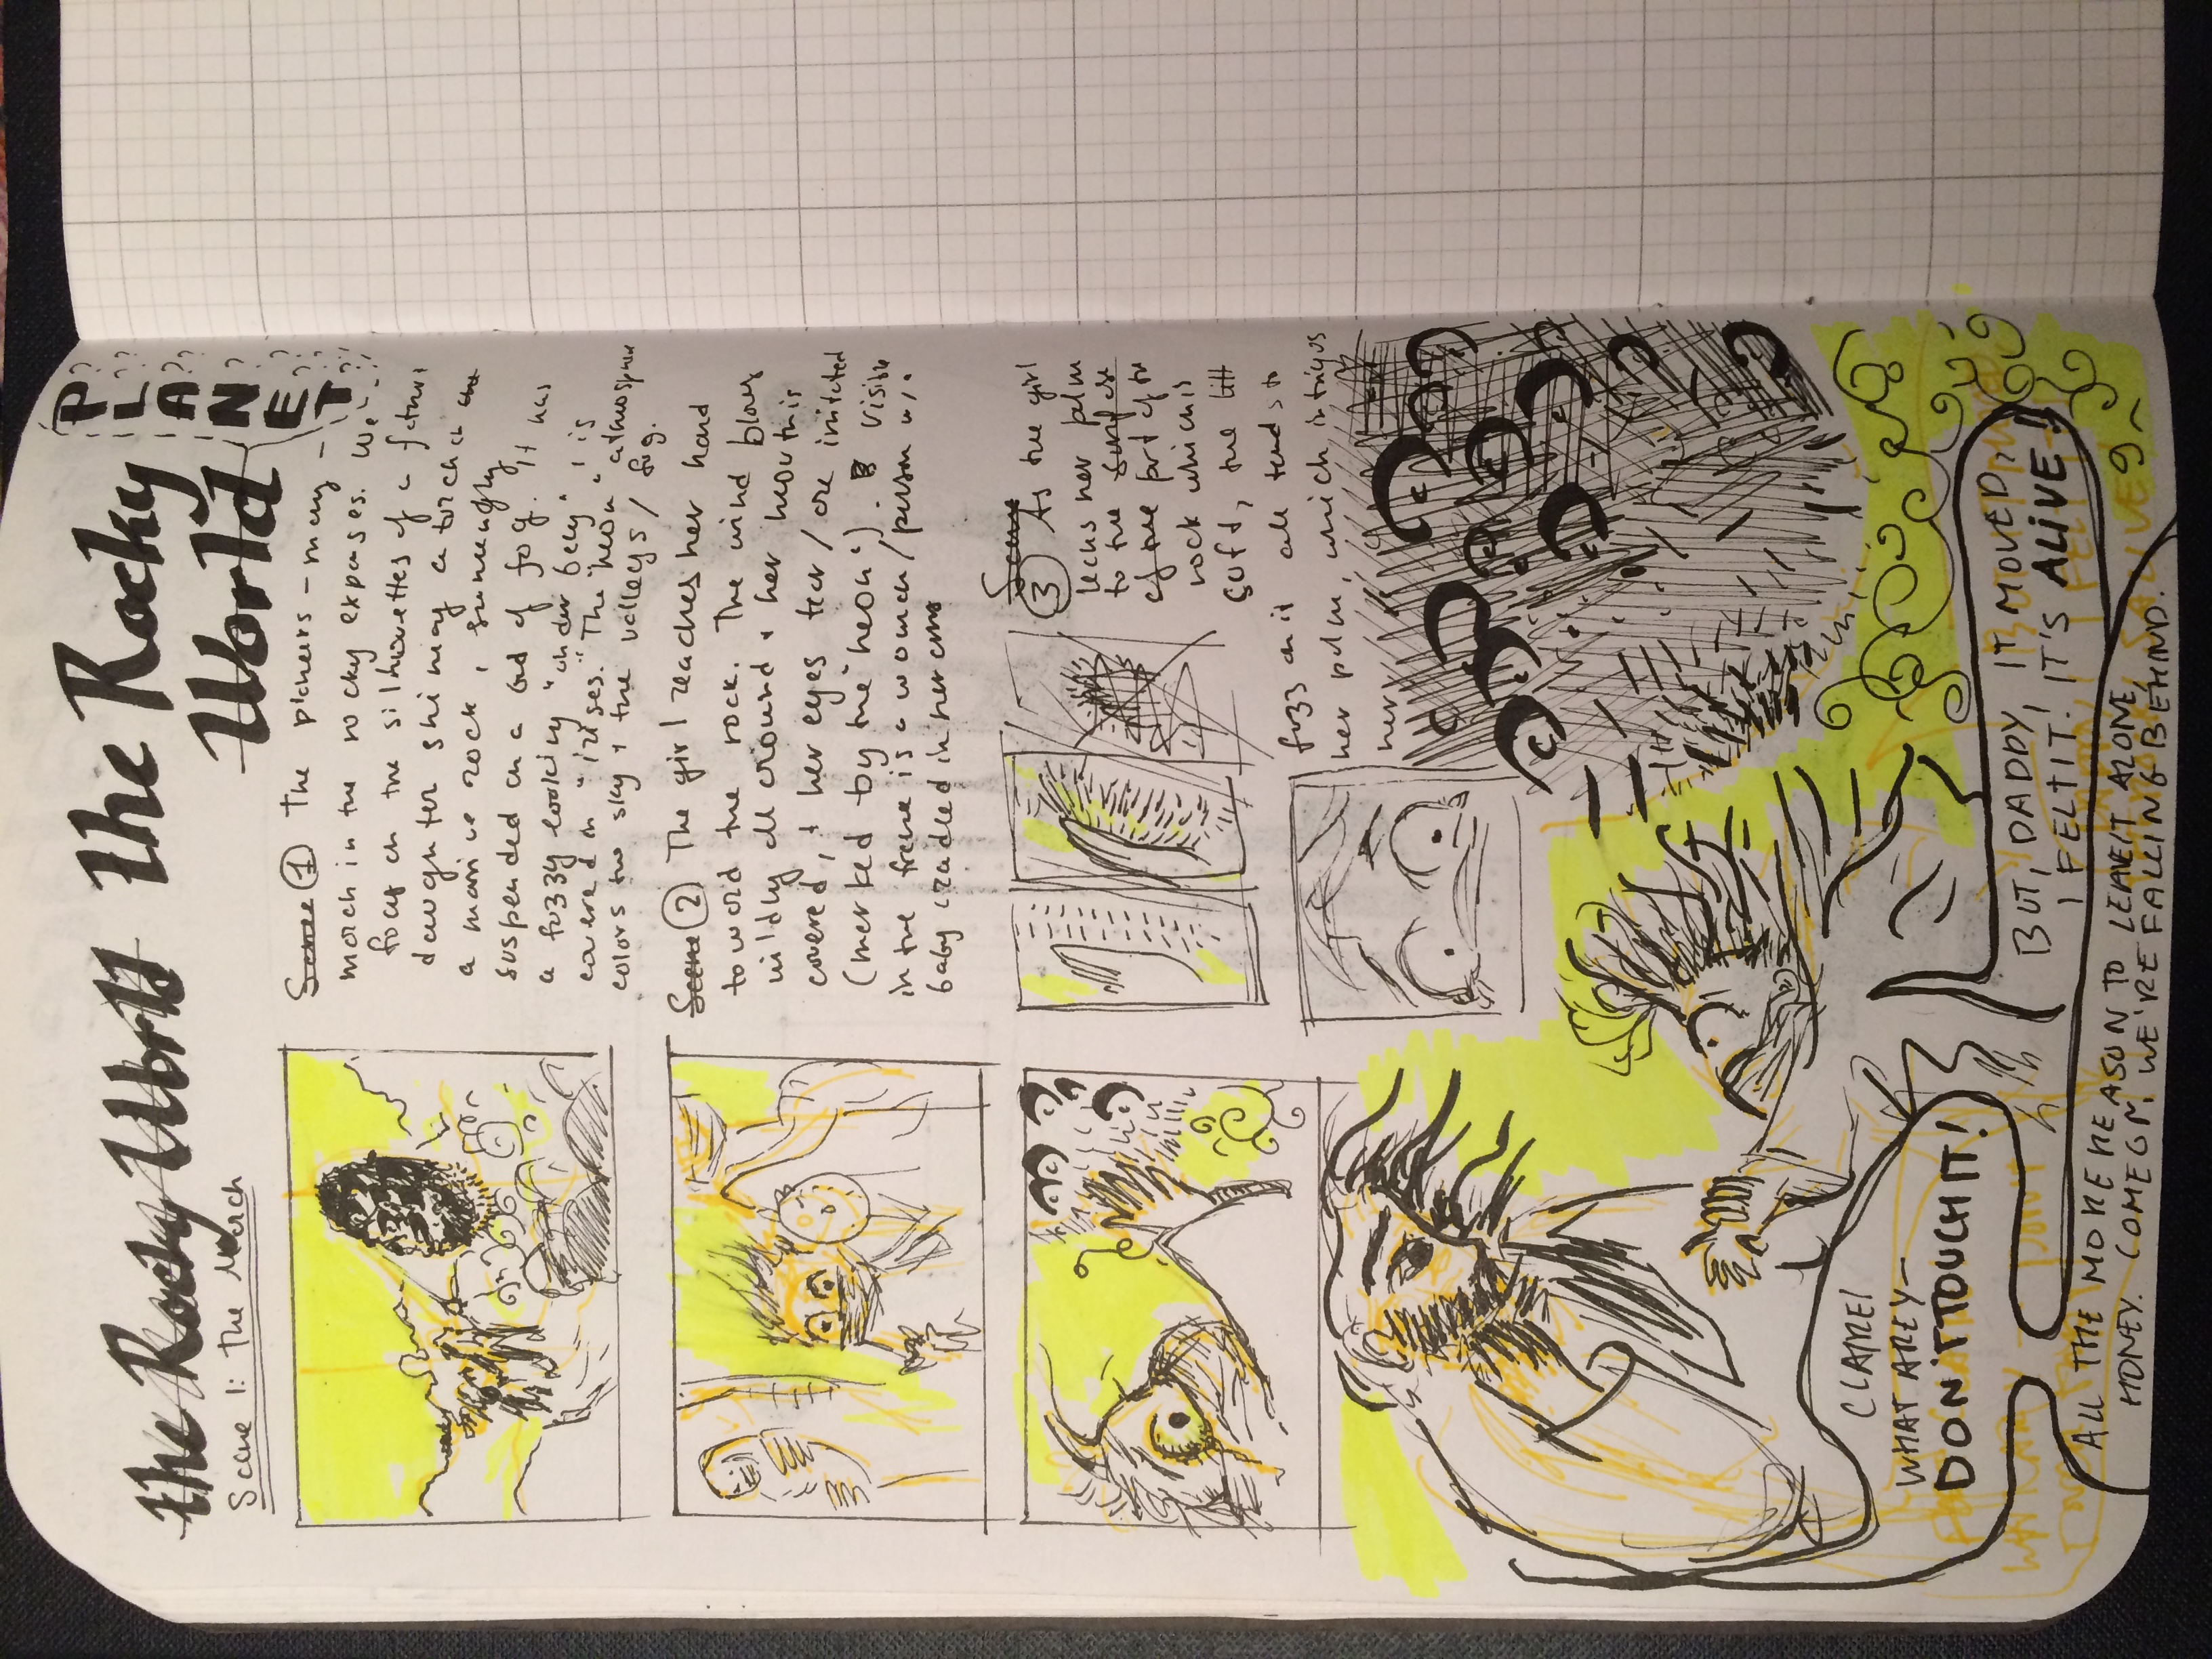 the Rocky World
the Rocky
World
PLANET
Scene 1: The March
Scene 1 The pioneers – many –
march in the rocky expanses. We
focus on the silhouettes of a father
daughter shining a torch on
a massive rock, seemingly
suspended on a bed of fog. It has
a fuzzy looking "under belly", is
covered in "irises." The "neon" atmosphere
colors the sky + the valleys / fog.
Scene 2 The girl reaches her hand
toward the rock. The wind blows
wildly all around + her mouth is
covered, + her eyes tear / are irritated
(marked by the "neon"). Visible
in the frame is a woman / person w/ a
baby cradled in her arms
Scene
3 As the girl
leans her palm
to the surface
of the part of the
rock which is
soft, the litt
fuzz on it all tends to
her palm, which intrigues
her
CLAIRE!
WHAT ARE Y—
DON'T TOUCH IT!
BUT, DADDY, IT MOVED,
I FELT IT! IT'S ALIVE!
ALL THE MORE REASON TO LEAVE IT ALONE,
HONEY. COME ON, WE'RE FALLING BEHIND.